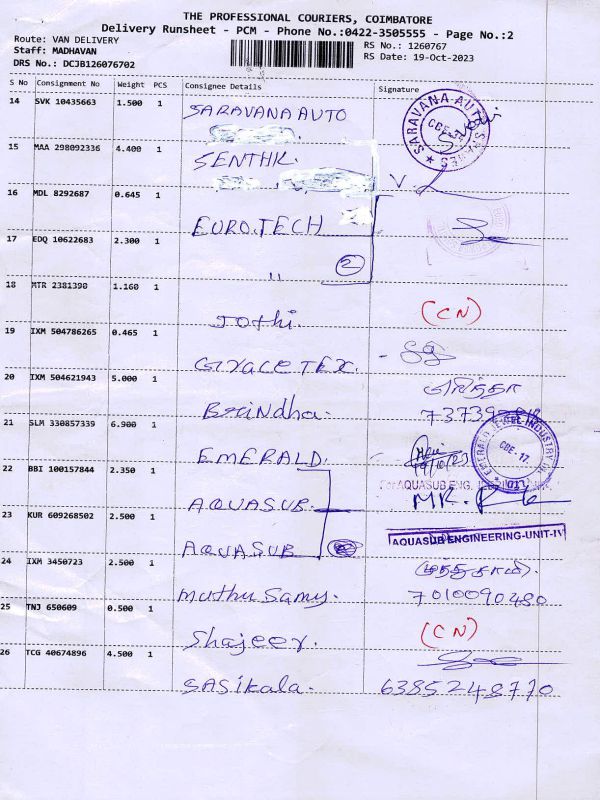 THE PROFESSIONAL COURIERS, COIMBATORE
Delivery Runsheet - PCM - Phone No.:0422-3505555 - Page No.:2
Route: VAN DELIVERY
RS No.: 1260767
Staff: MADHAVAN
RS Date: 19-Oct-2023
DRS No.: DCJB126076702
S No Consignment No Weight PCS Consignee Details Signature
14 SVK 10435663 1.500 1
SARAVANA AUTO
SARAVANA AUTO SPARES
CBE
15 MAA 298092336 4.400 1
SENTHIL.
16 MDL 8292687 0.645 1
EURO.TECH
17 EDQ 10622683 2.300 1
"
2
18 MTR 2381390 1.160 1
Jothi.
(CN)
19 IXM 504786265 0.465 1
Grace TEX.
20 IXM 504621943 5.000 1
Brindha.
பிரிந்தா
21 SLM 330857339 6.900 1
EMERALD.
EMERALD JEWEL INDUSTRY
CBE-17.
LTD
22 BBI 100157844 2.350 1
AQUASUB.
For AQUASUB ENG.
MR.
23 KUR 609268502 2.500 1
AQUASUB
AQUASUB ENGINEERING-UNIT-IV
24 IXM 3450723 2.500 1
Muthu Samy.
முத்துசாமி.
7010090480
25 TNJ 650609 0.500 1
Shajeer.
(CN)
26 TCG 40674896 4.500 1
SASikala.
6385248770